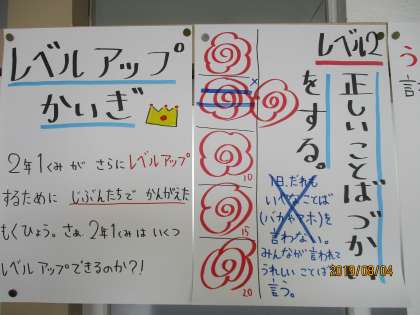 レベルアップ
かいぎ
2年1くみが さらにレベルアップ
するために じぶんたちで かんがえた
もくひょう。さぁ、2年1くみは いくつ
レベルアップできるのか?!
レベル2
正しいことばづかい
をする。
10
15
20
だれも
いやなことば
(バカ、アホ)を
言わない。
みんなが言われて
うれしいことば
言う。
2019/03/04
う
言